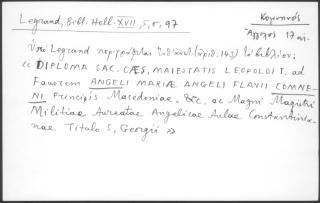 Legrand, Bibl. Hell. XVII, 5, σ, 97
Κομνηνός
Ἄγγελος 17 αἰ.
Ὑπὸ Legrand περιγράφεται (ἀριθ. 143) τὸ βιβλίον:
« DIPLOMA SAC. CÆS. MAIESTATIS LEOPOLDI I. ad
Fauorem ANGELI MARIÆ ANGELI FLAVII COMNE-
NI Principis Macedoniae, &c. ac Magni Magistri
Militiae Aureatae Angelicae Aulae Constantinia-
nae Titulo S, Georgii »